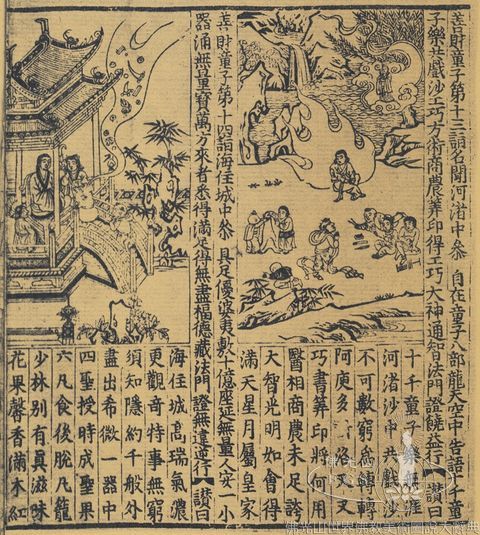 善財童子第十三詣名聞河渚中叅 自在童子八部龍天空中告語十千童
子樂共戲沙工巧方術商農筭印得工巧大神通智法門證饒益行【讃曰
十千童子無涯
河渚沙中共戲沙
不可數窮能轉轉
阿庾多洛叉叉
巧書筭印將何用
醫相商農未足誇
大智光明如會得
滿天星月屬皇家
善財童子第十四詣海住城中叅 具足優婆夷敷十億座延無量人安一小
器涌無量寶萬方來者悉得滿足得無盡福德藏法門 證無違逆行【讃曰
海住城高瑞氣濃
更觀奇特事無窮
須知隱約千般外
盡出希微一器中
四聖授時成聖果
六凡食後脫凡籠
少林別有真滋味
花果馨香滿木紅
佛光山世界佛教美術圖說大辭典